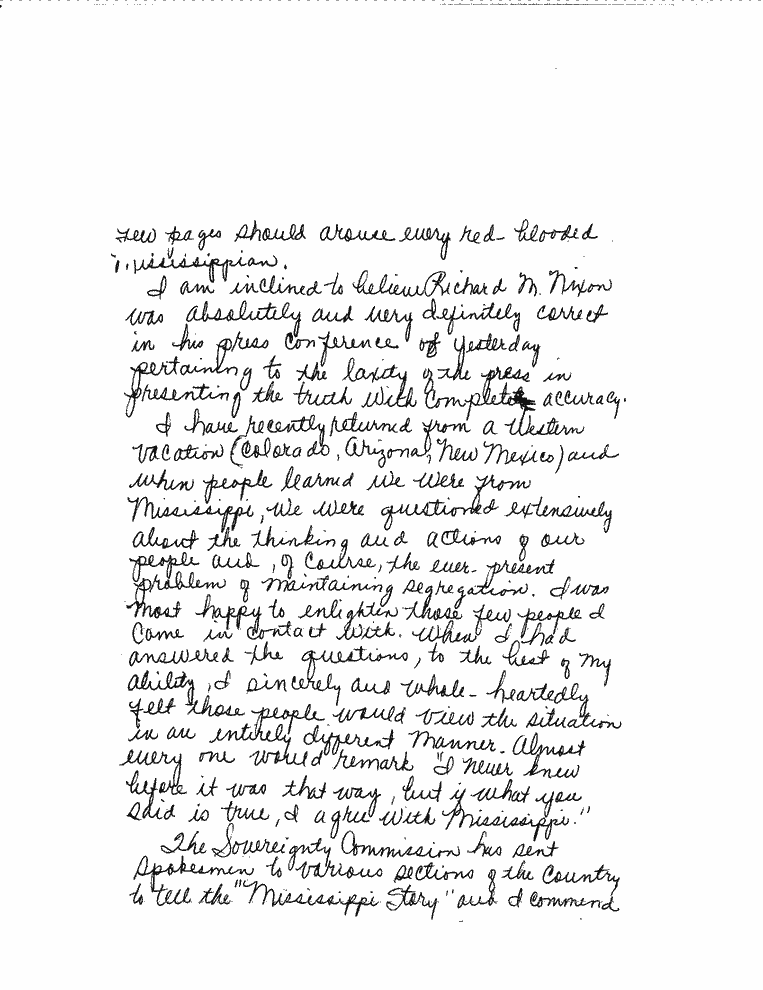 few pages should arouse every red-blooded
Mississippian.
I am inclined to believe Richard M. Nixon
was absolutely and very definitely correct
in his press conference of yesterday
pertaining to the laxity of the press in
presenting the truth with complete accuracy.
I have recently returned from a Western
vacation (Colorado, Arizona, New Mexico) and
when people learned we were from
Mississippi, we were questioned extensively
about the thinking and actions of our
people and, of course, the ever-present
problem of maintaining segregation. I was
most happy to enlighten those few people I
came in contact with. When I had
answered the questions, to the best of my
ability, I sincerely and whole-heartedly
felt those people would view the situation
in an entirely different manner. Almost
every one would remark "I never knew
before it was that way, but if what you
said is true, I agree with Mississippi."
The Sovereignty Commission has sent
spokesmen to various sections of the country
to tell the "Mississippi Story" and I commend